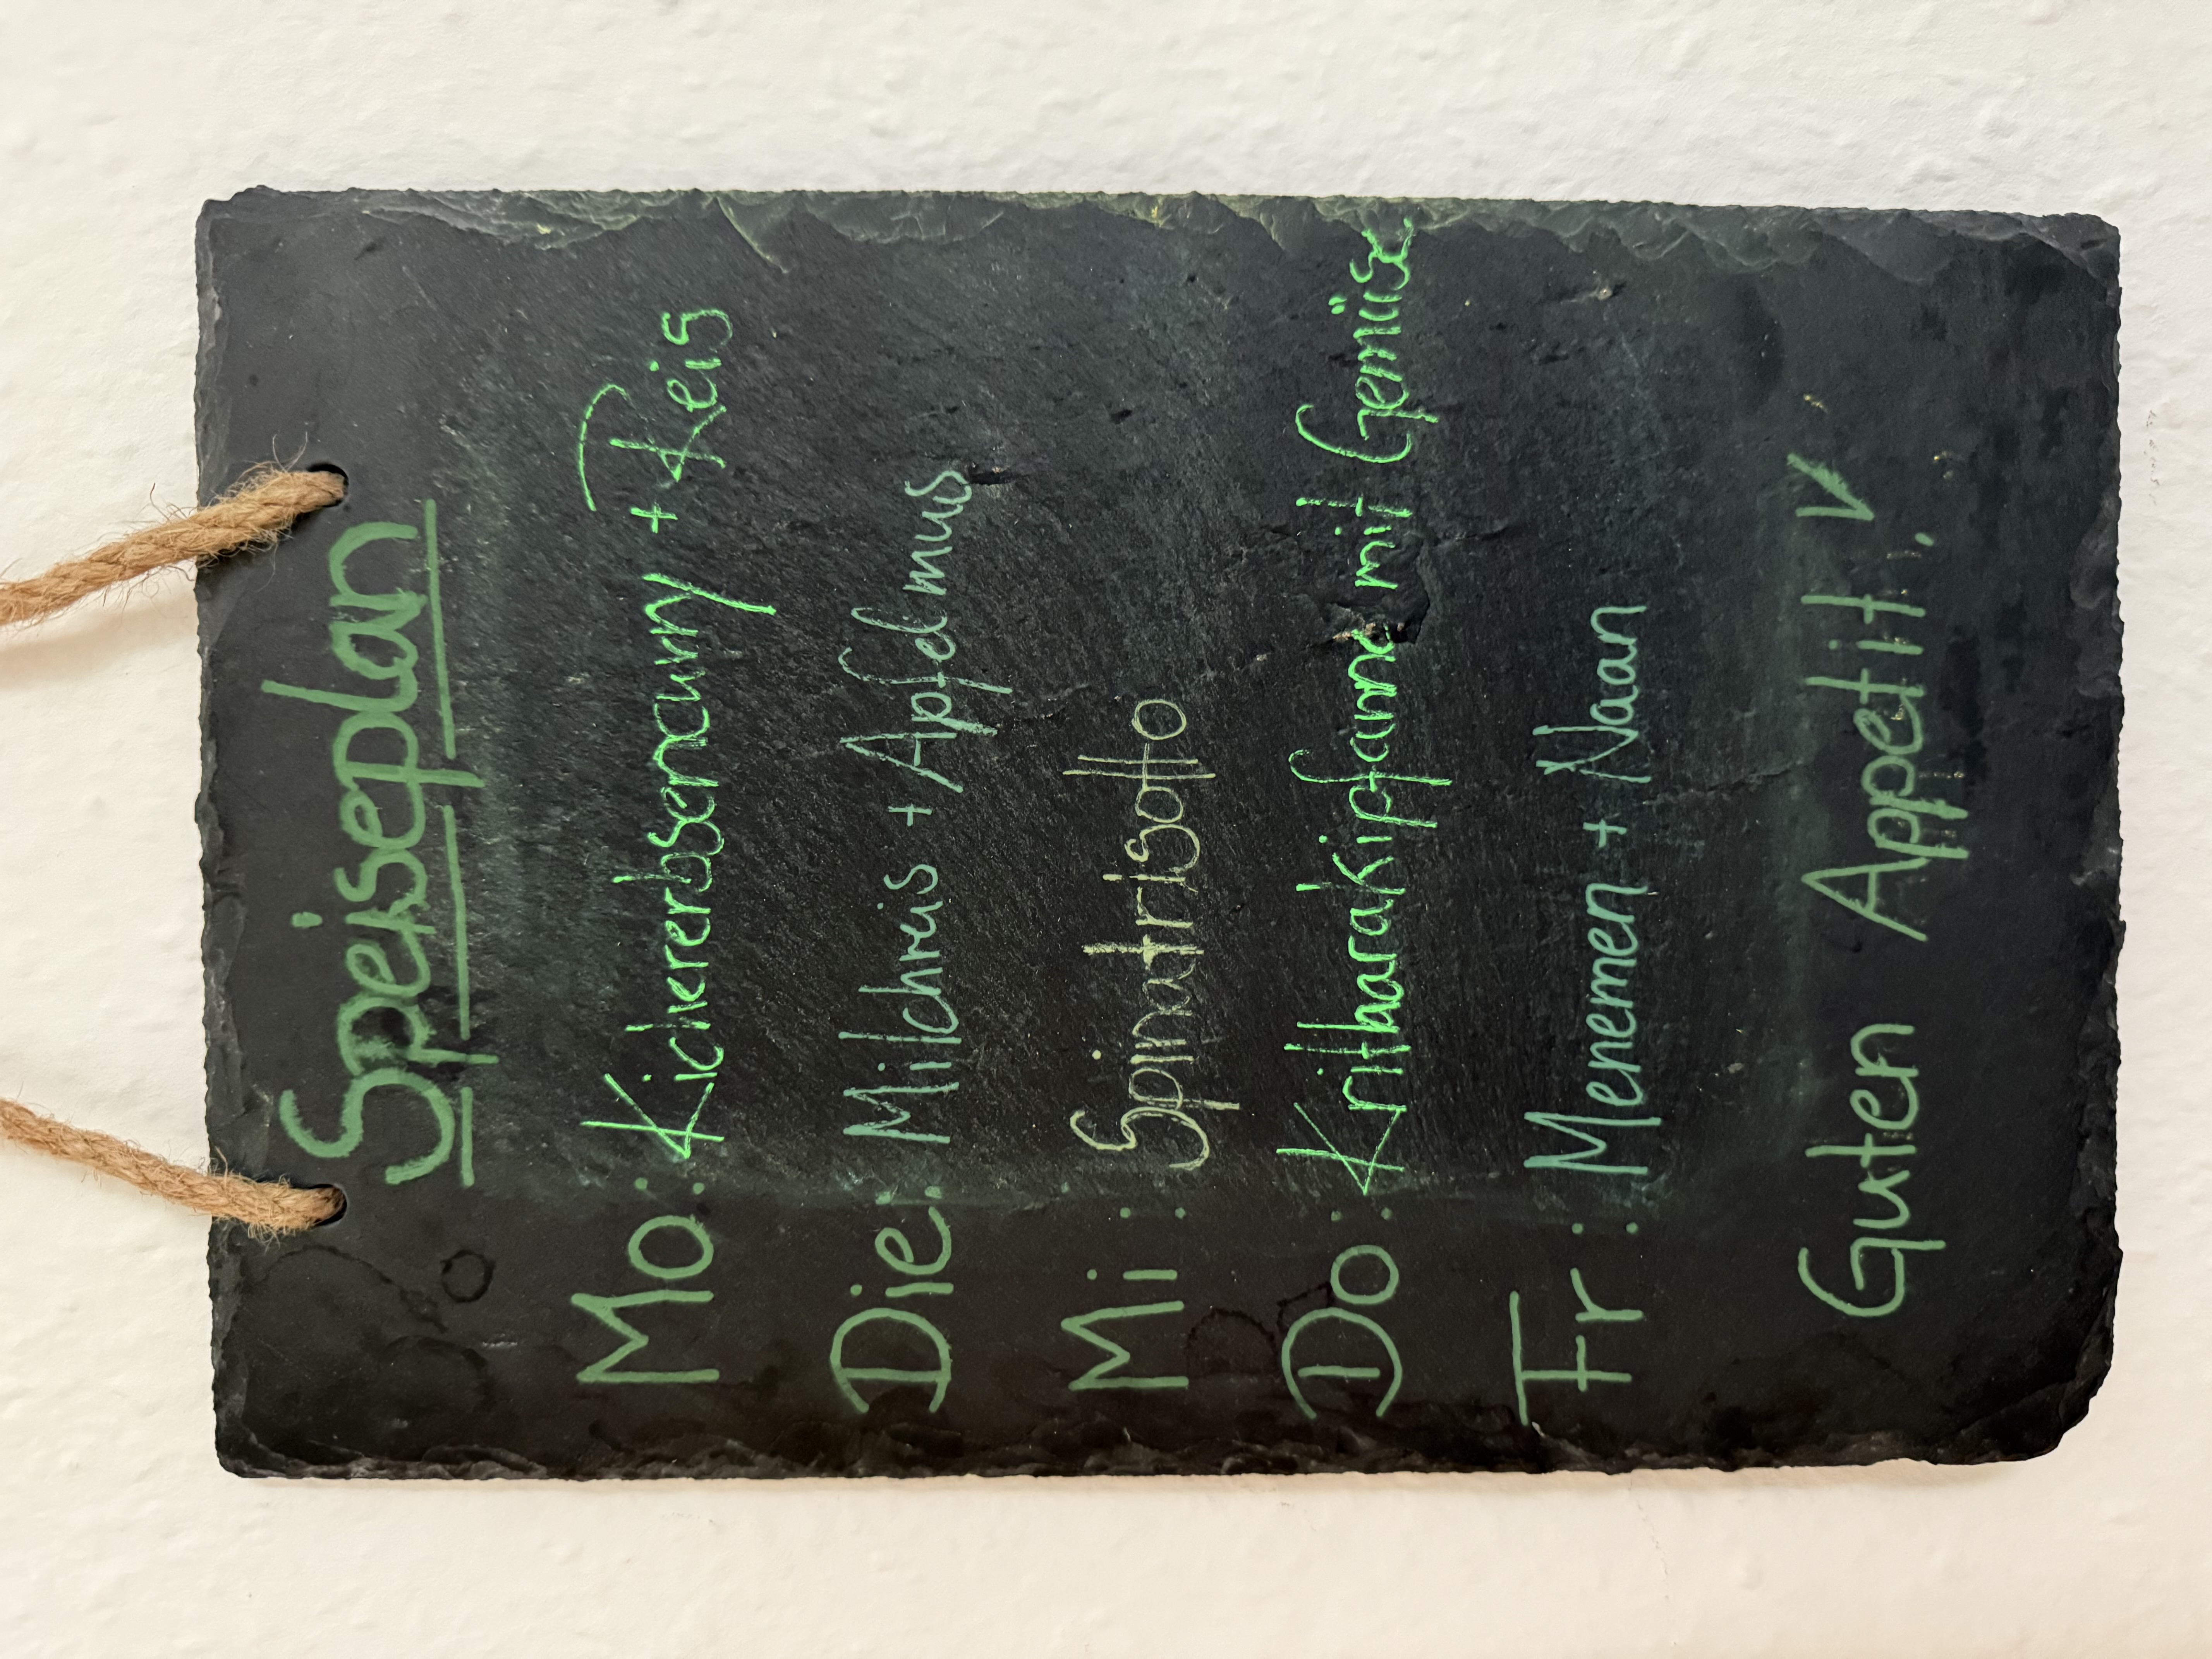 Speiseplan
Mo: Kichererbsencurry + Reis
Die: Milchreis + Apfelmus
Mi: Spinatrisotto
Do: Kritharakipfanne mit Gemüse
Fr: Menemen + Naan
Guten Appetit!